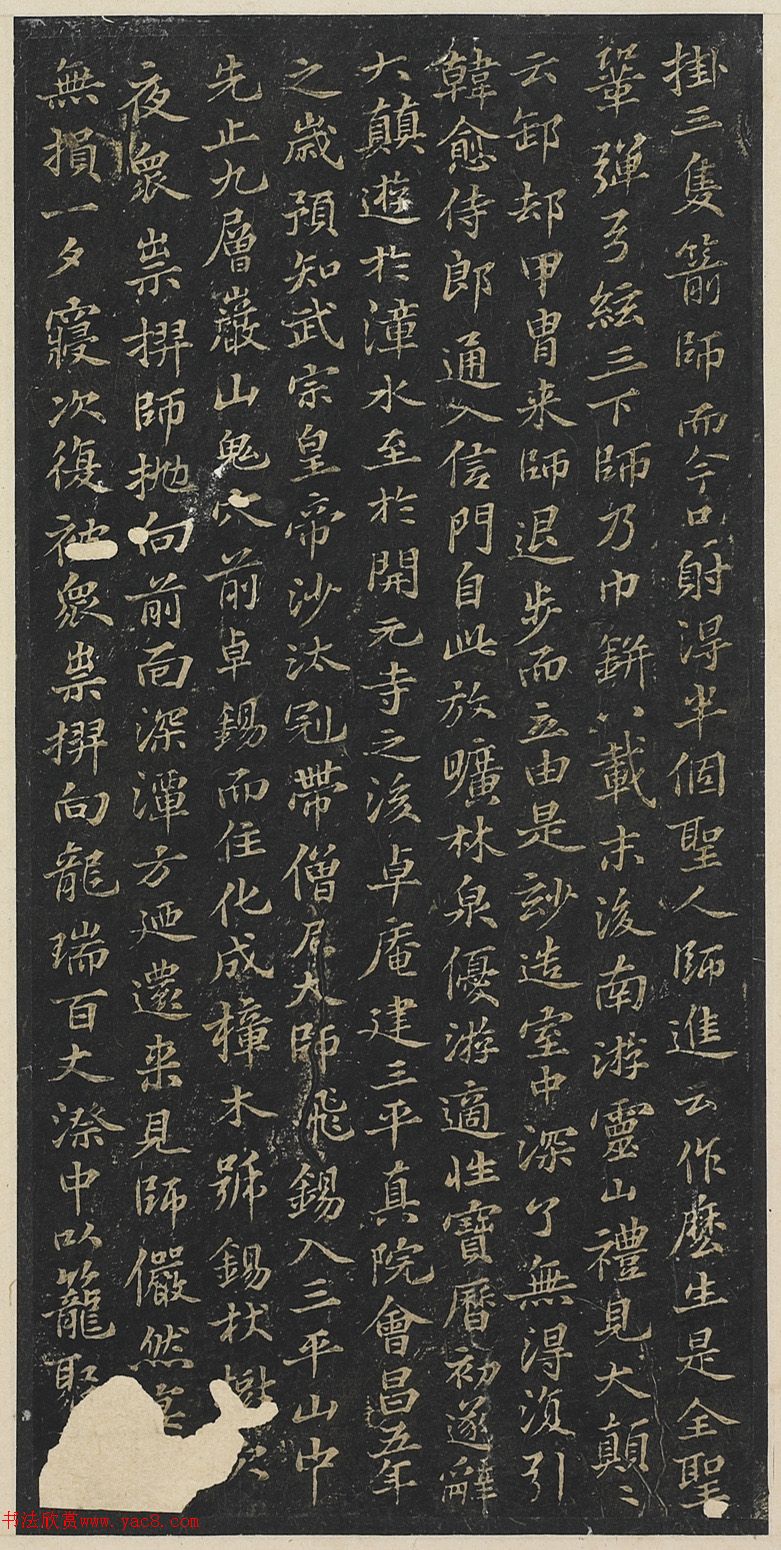 掛三隻箭師而今只射得半個聖人師進云作麼生是全聖
鞏彈弓絃三下師乃巾缾八載末後南游靈山禮見大顛〻
云卸却甲冑来師退步而立由是玅造室中深了無得湏引
韓愈侍郎通入信門自此放曠林泉優游適性寶曆初遂辭
大顛遊於漳水至於開元寺之後卓庵建三平真院會昌五年
之歲預知武宗皇帝沙汰冠帶僧尼大師飛錫入三平山中
先止九層巖山鬼穴前卓錫而住化成樟木號錫杖樹次
夜衆祟捰師抛向前面深潭方迊還来見師儼然
無損一夕寢次復被衆祟捰向龍瑞百丈漈中以籠聚
书法欣赏www.yac8.com